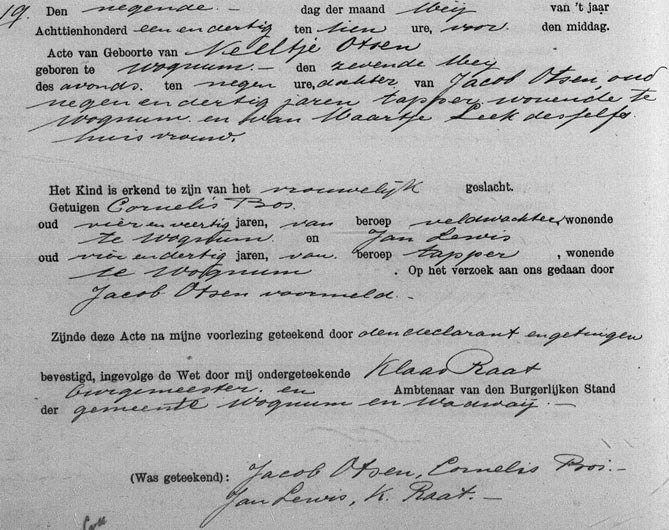 19. Den negende. dag der maand Mey van 't jaar
Achttienhonderd een en dertig ten tien ure, voor den middag.
Acte van Geboorte van Neeltje Otsen
geboren te Wognum. — den zevende Mey
des avonds ten negen ure, dochter van Jacob Otsen, oud
negen en dertig jaren tapper, wonende te
Wognum en van Maartje Leek desselfs
huisvrouw.
Het Kind is erkend te zijn van het vrouwelijk geslacht.
Getuigen Cornelis Bos.
oud vier en veertig jaren, van beroep veldwachter, wonende
te Wognum en Jan Lewis
oud vier en dertig jaren, van beroep tapper, wonende
te Wognum. Op het verzoek aan ons gedaan door
Jacob Otsen voormeld. —
Zijnde deze Acte na mijne voorlezing geteekend door den declarant en getuigen
bevestigd, ingevolge de Wet door mij ondergeteekende Klaas Raat
burgemeester. en Ambtenaar van den Burgerlijken Stand
der gemeente Wognum en Wadway. —
(Was geteekend): Jacob Otsen, Cornelis Bos. —
Jan Lewis, K. Raat. —